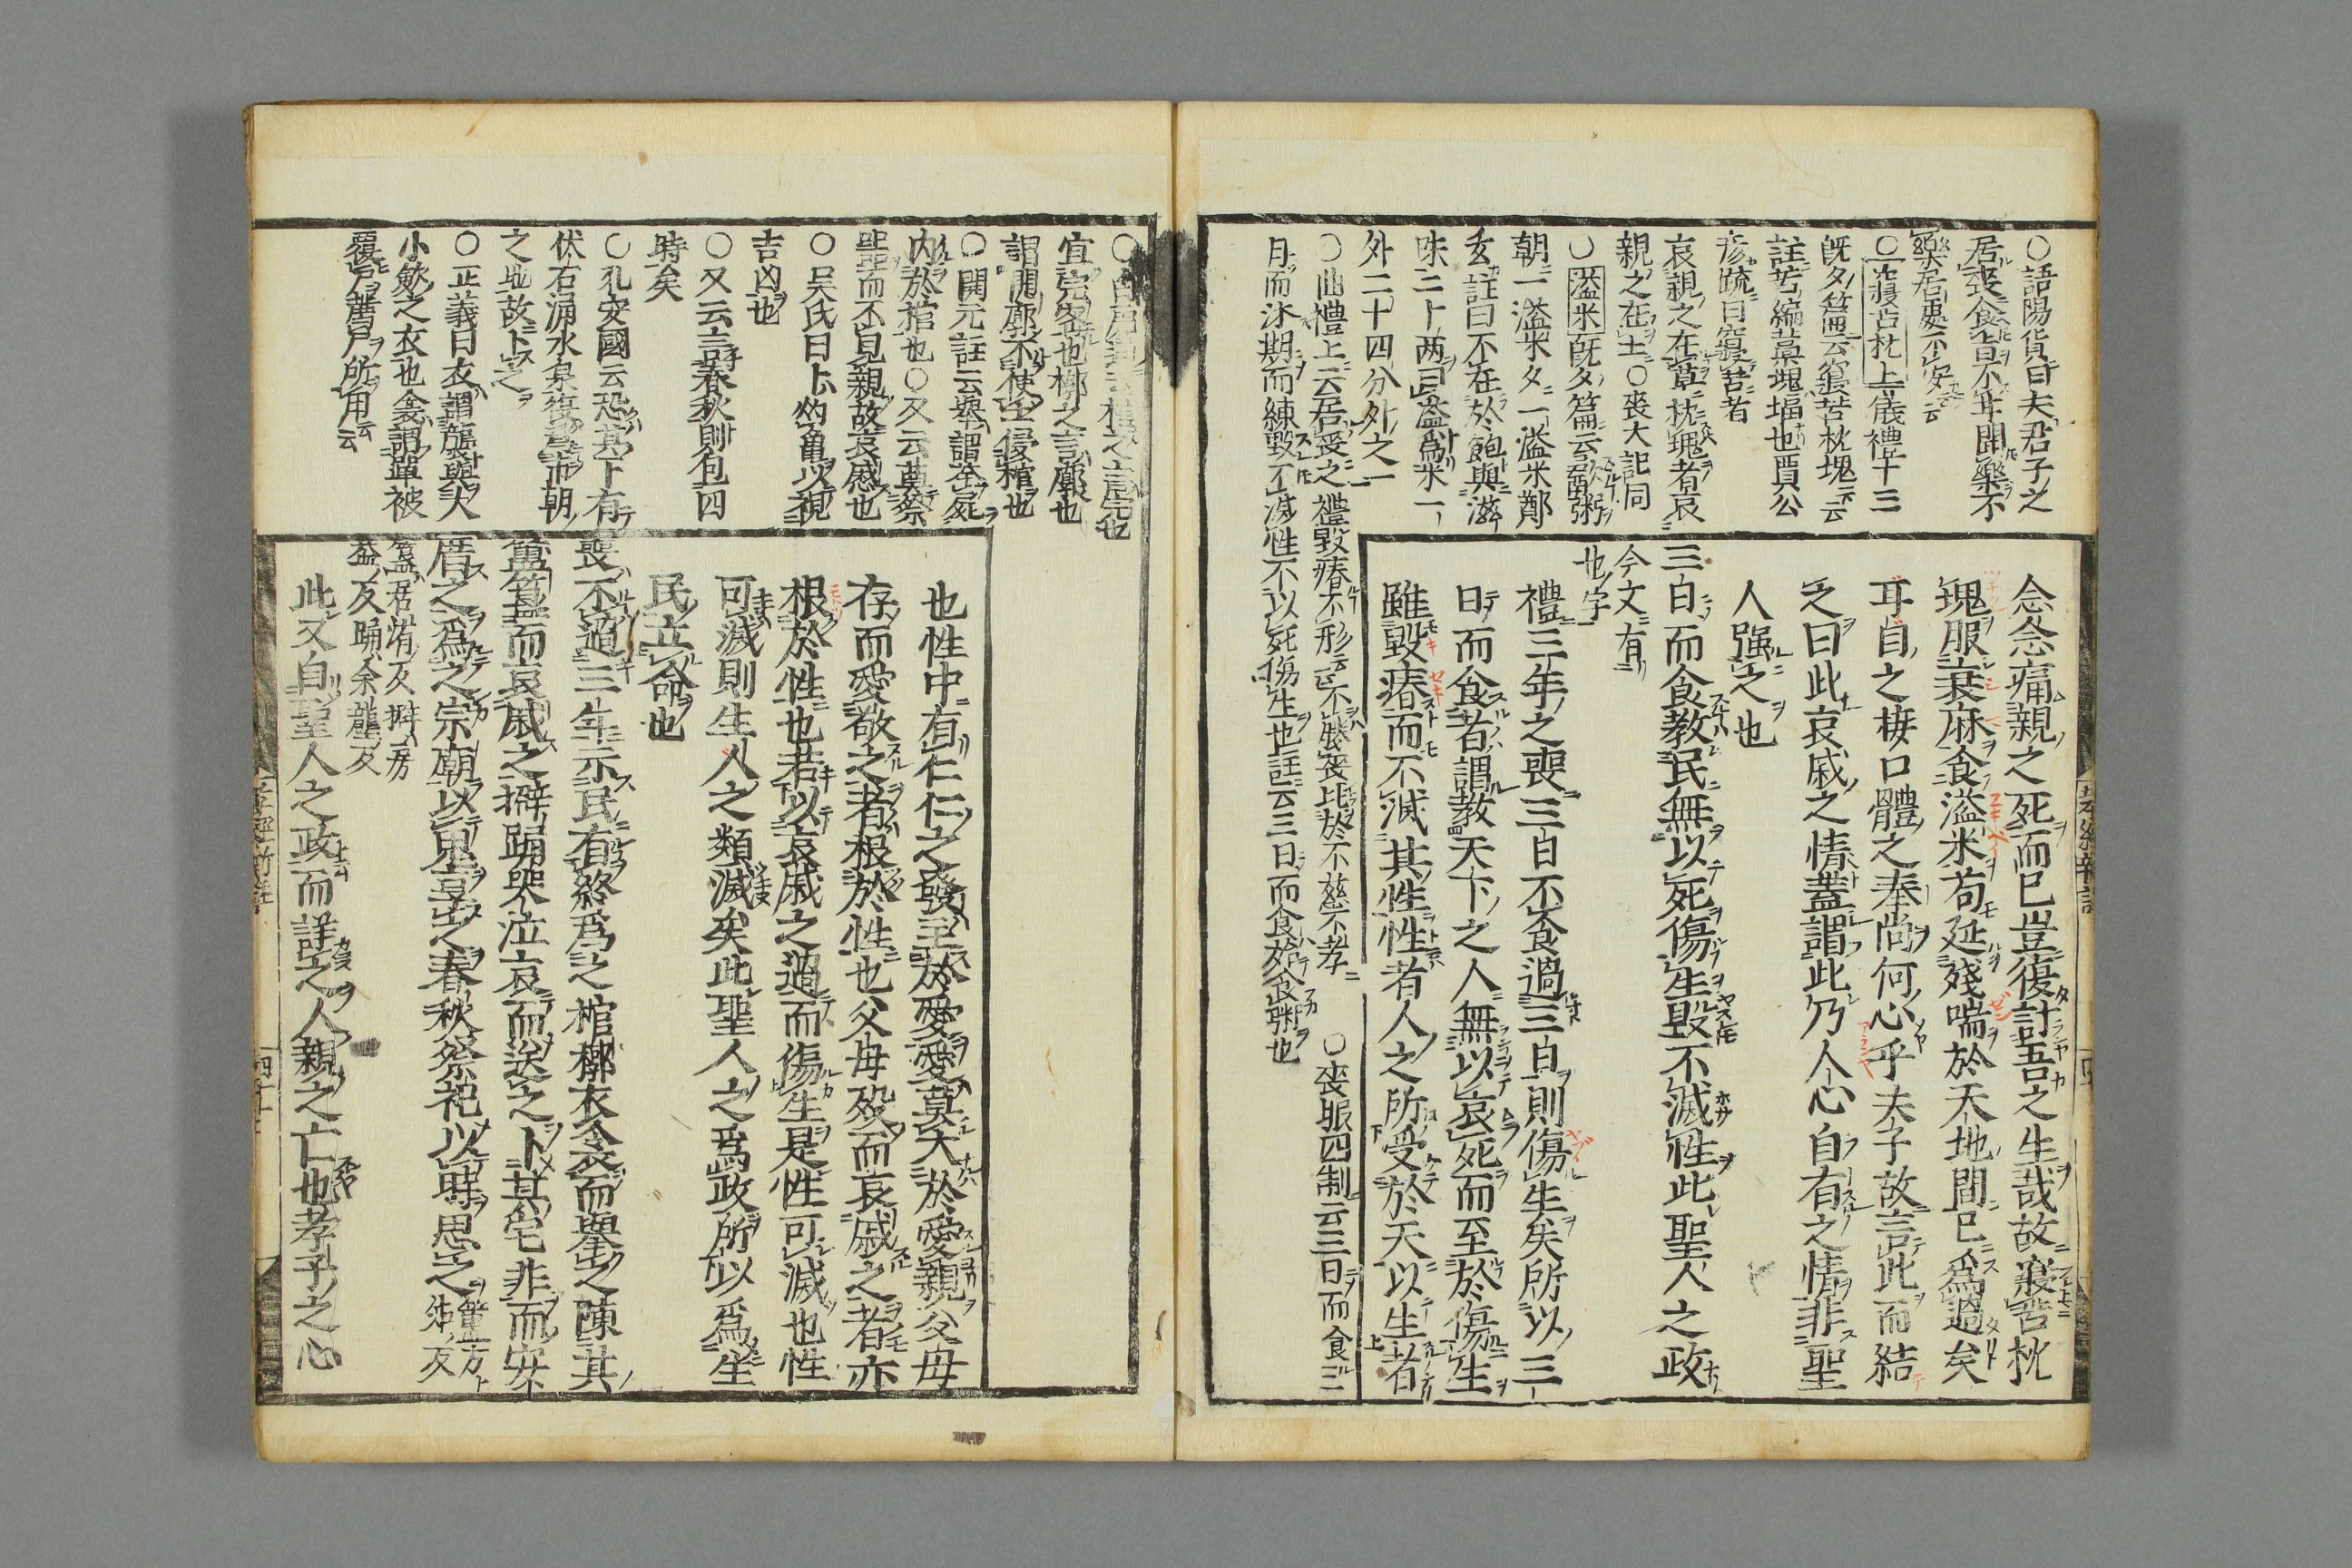 ○語陽貨曰夫君子之
居喪食旨不甘聞樂不
樂居處不安云云
○寢苫枕上儀禮十三
既夕篇云寢苫枕塊云云
註苫編藁塊堛也賈公
彦疏曰寢苫者
哀親之在草枕塊者哀
親之在土○喪大記同
○溢米既夕篇云歠粥
朝一溢米夕一溢米鄭
玄註曰不在於飽與滋
味二十両曰溢為米一
外二十四分外之一
○曲禮上云居喪之禮毀瘠不形云云不勝喪比於不慈不孝
○喪服四制云三日而食三
月而沐期而練毀不滅性不以死傷生也註云三日而食始食粥也
念念痛親之死而已豈復計吾之生哉故寢苫枕
塊服衰麻食溢米苟延殘喘於天地間已為過矣
耳目之棲口體之奉尚何心乎夫子故言此而結
之曰此哀戚之情蓋謂此乃人心自有之情非聖
人强之也
三日而食教民無以死傷生毀不滅性此聖人之政
今文有
也字
禮三年之喪三日不食過三日則傷生矣所以三
日而食者謂教天下之人無以哀死而至於傷生
雖毀瘠而不滅其性性者人之所受於天以生者
宜完密也槨之言廓也
謂開廓不使土侵棺也
○開元註云擧謂擧屍
内於棺也○又云奠祭
器而不見親故哀慼也
○吴氏曰卜灼龜以視
吉凶也
○又云言春秋則包四
時矣
○孔安國云恐其下有
伏石涌水泉復為市朝
之地故卜之
○正義曰衣謂襲與大
小斂之衣也衾謂單被
覆尸薦尸所用云云
也性中有仁仁之發至於愛愛莫大於愛親父母
存而愛敬之者根於性也父母歿而哀戚之者亦
根於性也若以哀戚之過而傷生是性可滅也性
可滅則生人之類滅矣此聖人之為政所以為生
民立命也
喪不過三年示民有終為之棺槨衣衾而擧之陳其
簠簋而哀戚之擗踊哭泣哀而送之卜其宅非而安
厝之為之宗廟以鬼享之春秋祭祀以時思之
簋居洧反擗房
益反踊余隴反
此又自聖人之政而詳之人親之亡也孝子之心